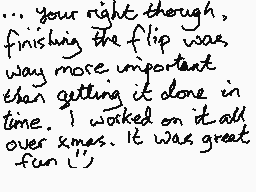 ... your right though,
finishing the flip was
way more important
then getting it done in
time. I worked on it all
over xmas. It was great
fun :)